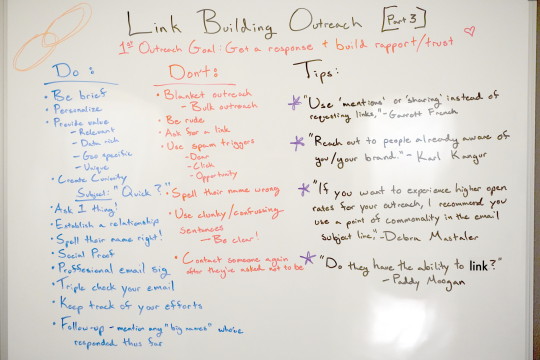 Link Building Outreach [Part 3]
1st Outreach Goal: Get a response + build rapport/trust
Do:
• Be brief
• Personalize
• Provide value
- Relevant
- Data rich
- Geo specific
- Unique
• Create Curiosity
Subject: "Quick ?"
• Ask 1 thing!
• Establish a relationship
• Spell their name right!
• Social Proof
• Proffessional email sig
• Triple check your email
• Keep track of your efforts
• Follow-up - mention any "big names" who've
responded thus far
Don't:
• Blanket outreach
- Bulk outreach
• Be rude
• Ask for a link
• Use spam triggers
- Dear
- Click
- Opportunity
• Spell their name wrong
• Use clunky/confussing
sentances
- Be clear!
• Contact someone again
after they've asked not to be
Tips:
* "Use 'mentions' or 'sharing' instead of
requesting links," - Garrett French
* "Reach out to people already aware of
you/your brand." - Karl Kangur
* "If you want to experience higher open
rates for your outreach, I recommend you
use a point of commonality in the email
subject line," - Debra Mastaler
* "Do they have the ability to link?"
- Paddy Moogan